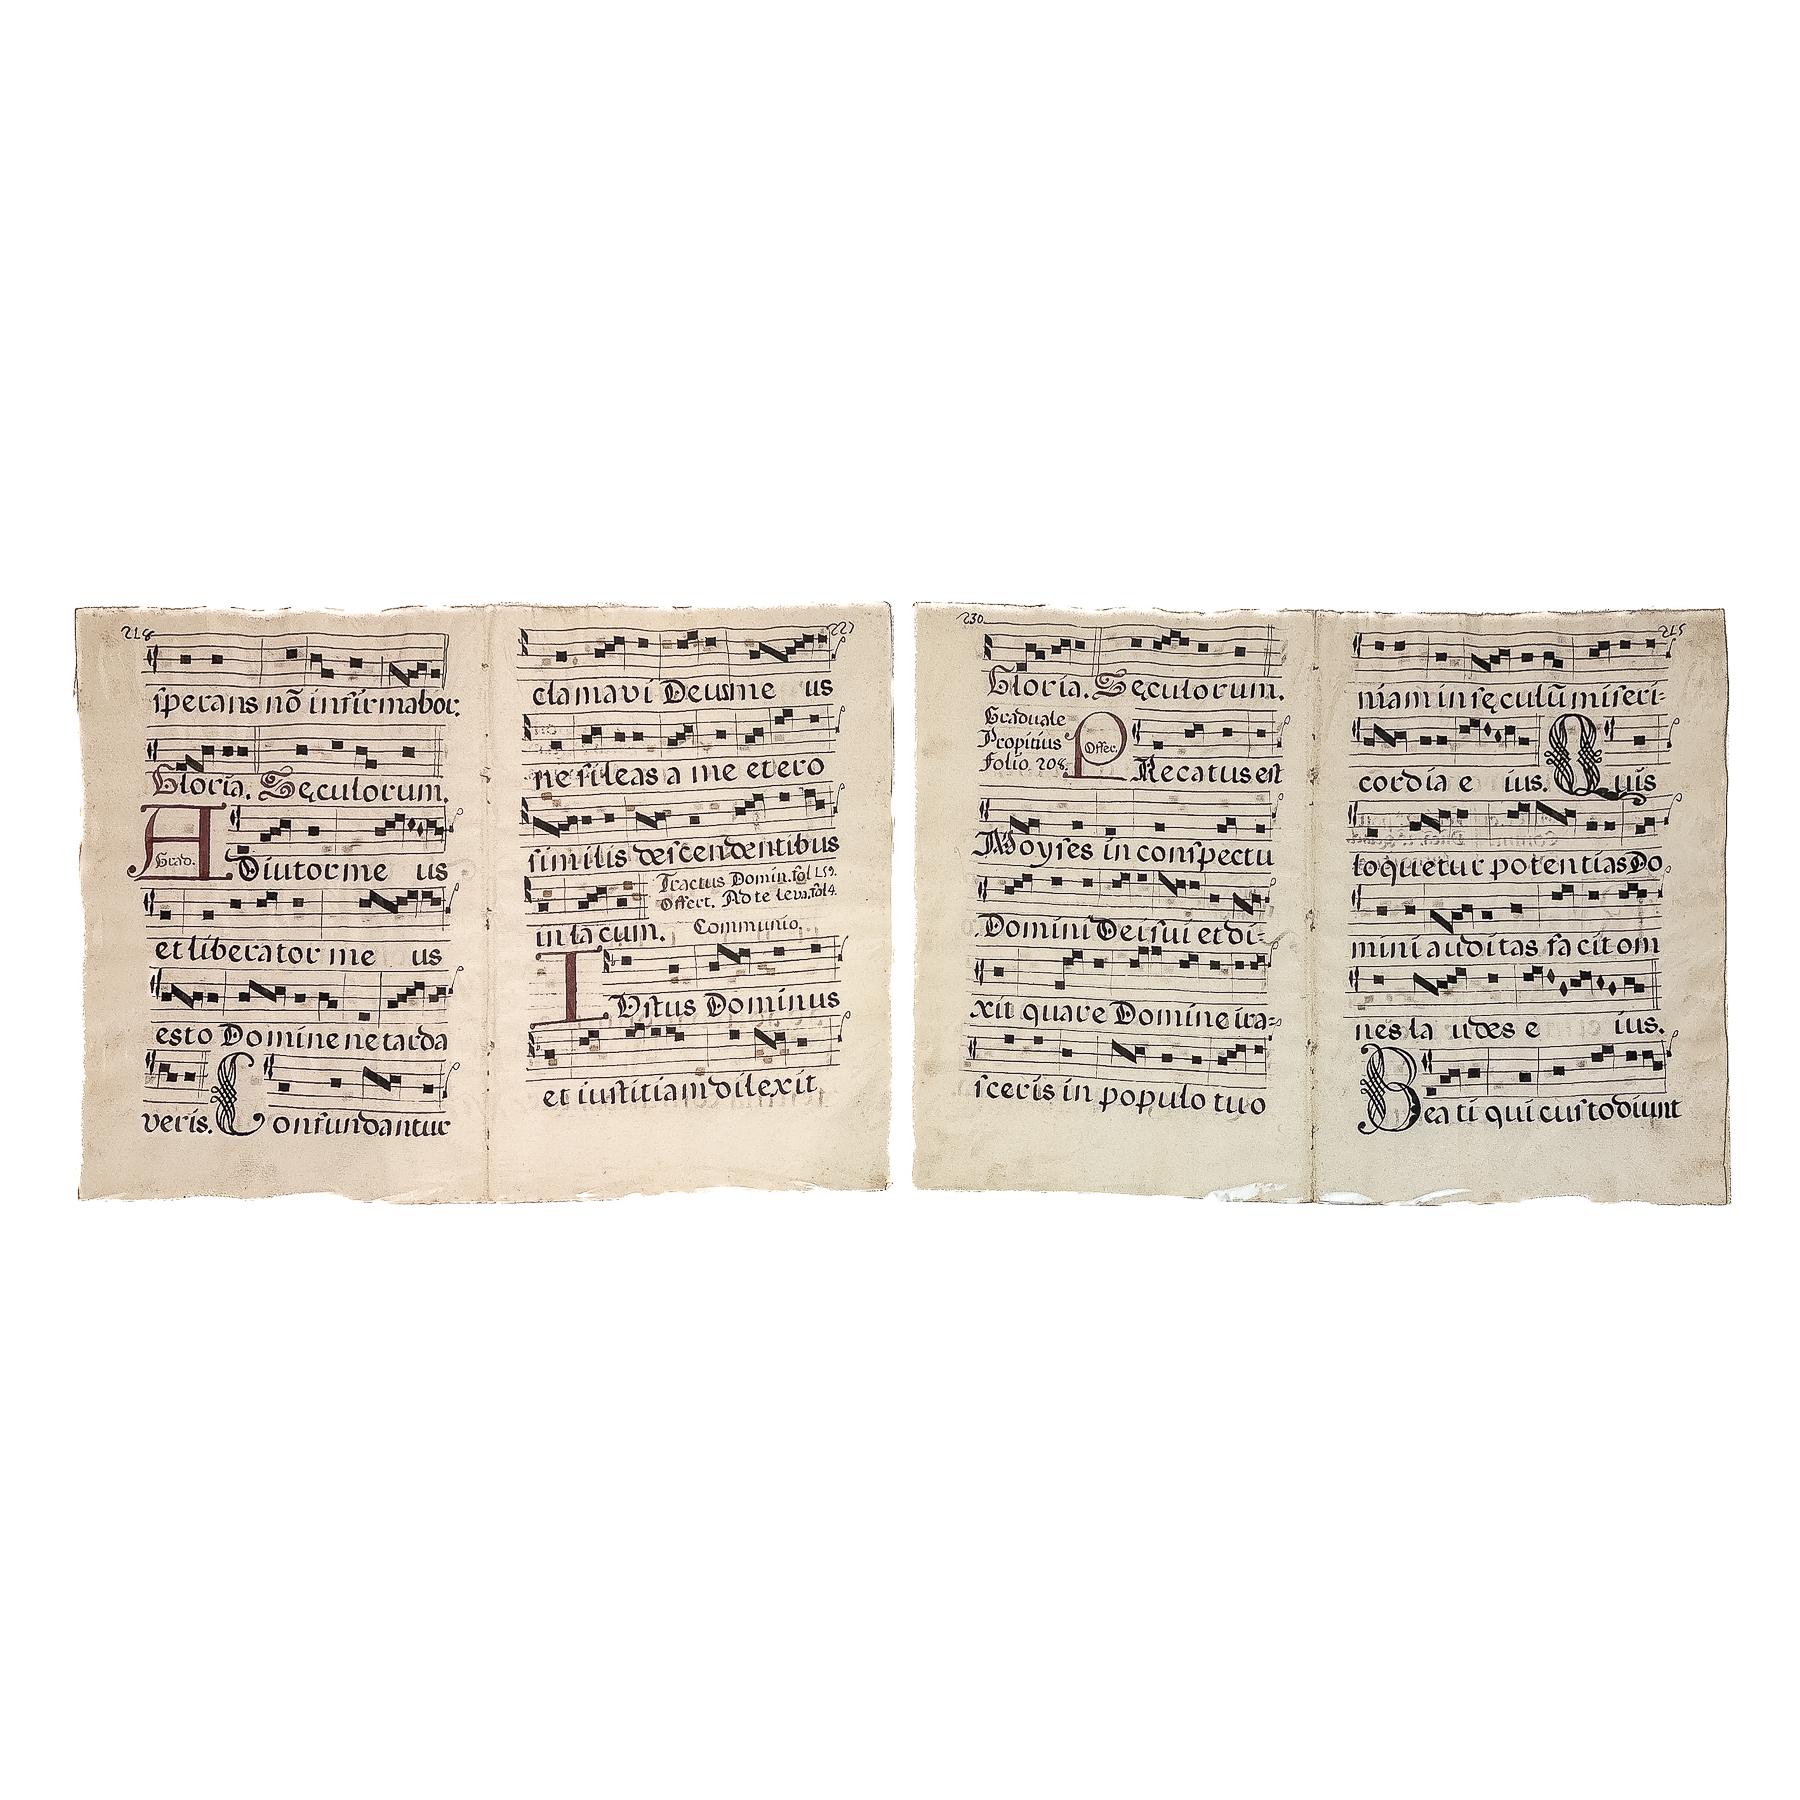 218
sperans nō infirmabor.
Gloria. Sęculorum.
A
Grad.
Diutor me us
et liberator me us
esto Domine ne tarda
veris. Confundantur
227
clamavi Deus me us
ne sileas a me et ero
similis descendentibus
Tractus Domin. fol 159.
Offert. Ad te leva. fol 4.
in lacum. Communio.
I
Ustus Dominus
et iustitiam dilexit
230
Gloria. Sęculorum.
Graduale
Propitius
folio 208.
P
Offer.
Recatus est
Moyses in conspectu
Domini Dei sui et di-
xit quare Domine ira=
sceris in populo tuo
215
niam in sęculū miseri=
cordia e ius. Quis
loquetur potentias Do
mini auditas facit om
nes la udes e ius.
Beati qui custodiunt